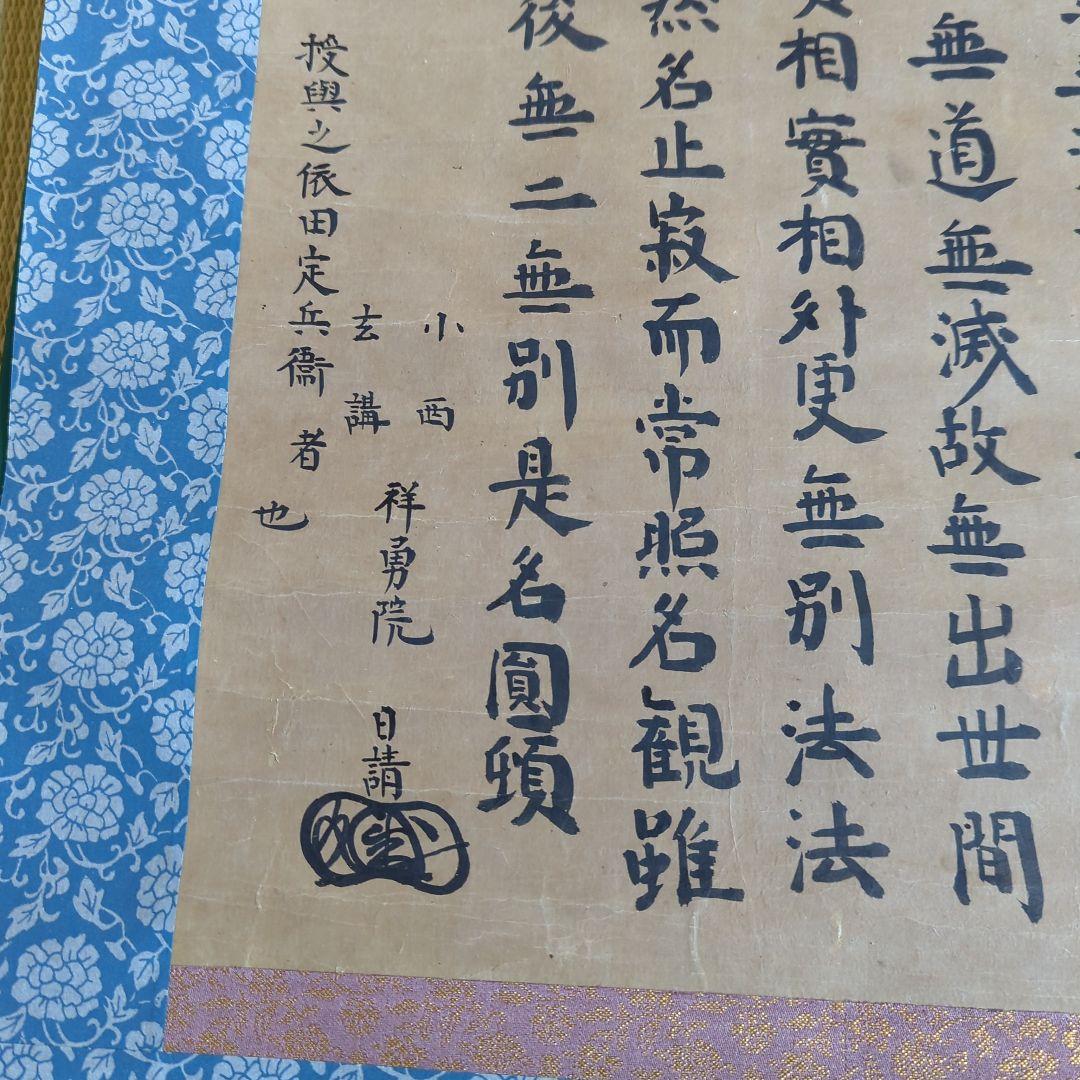 無道無滅故無出世間
相實相外更無別法法
然名止寂而常照名観雖
後無二無別是名圓頓
小西
玄講
祥勇院
日請
授與之依田定兵衞者
也